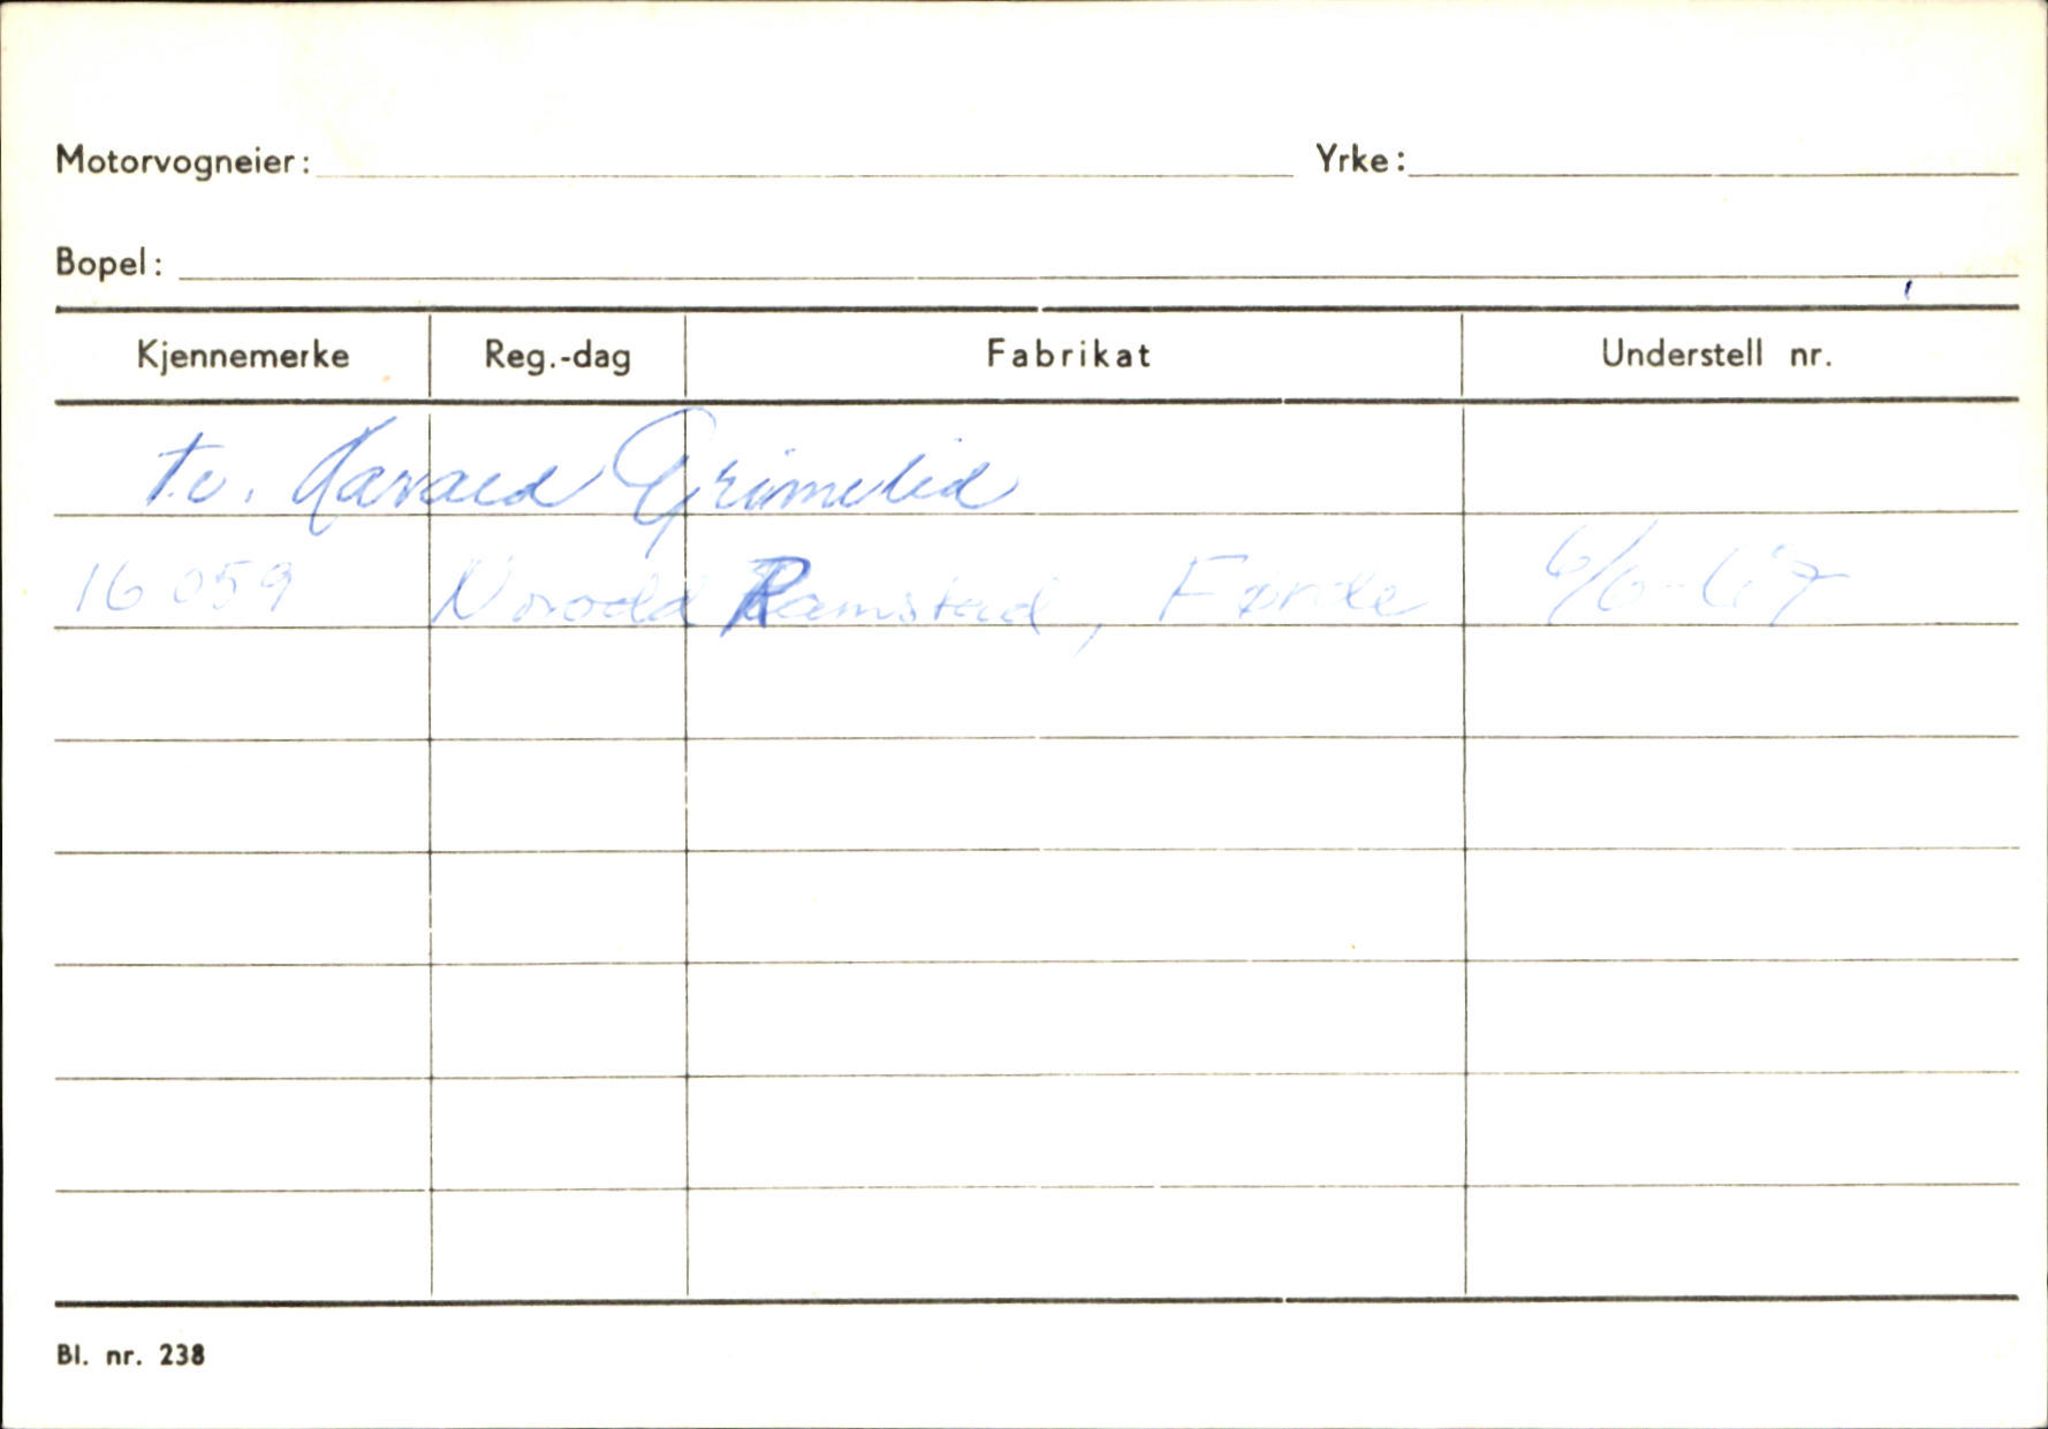 Motorvogneier: Yrke:
Bopel:
Kjennemerke Reg.-dag Fabrikat Understell nr.
Grimelid
16059 Norodd Ramstad, Førde 6/6-67
Bl. nr. 238